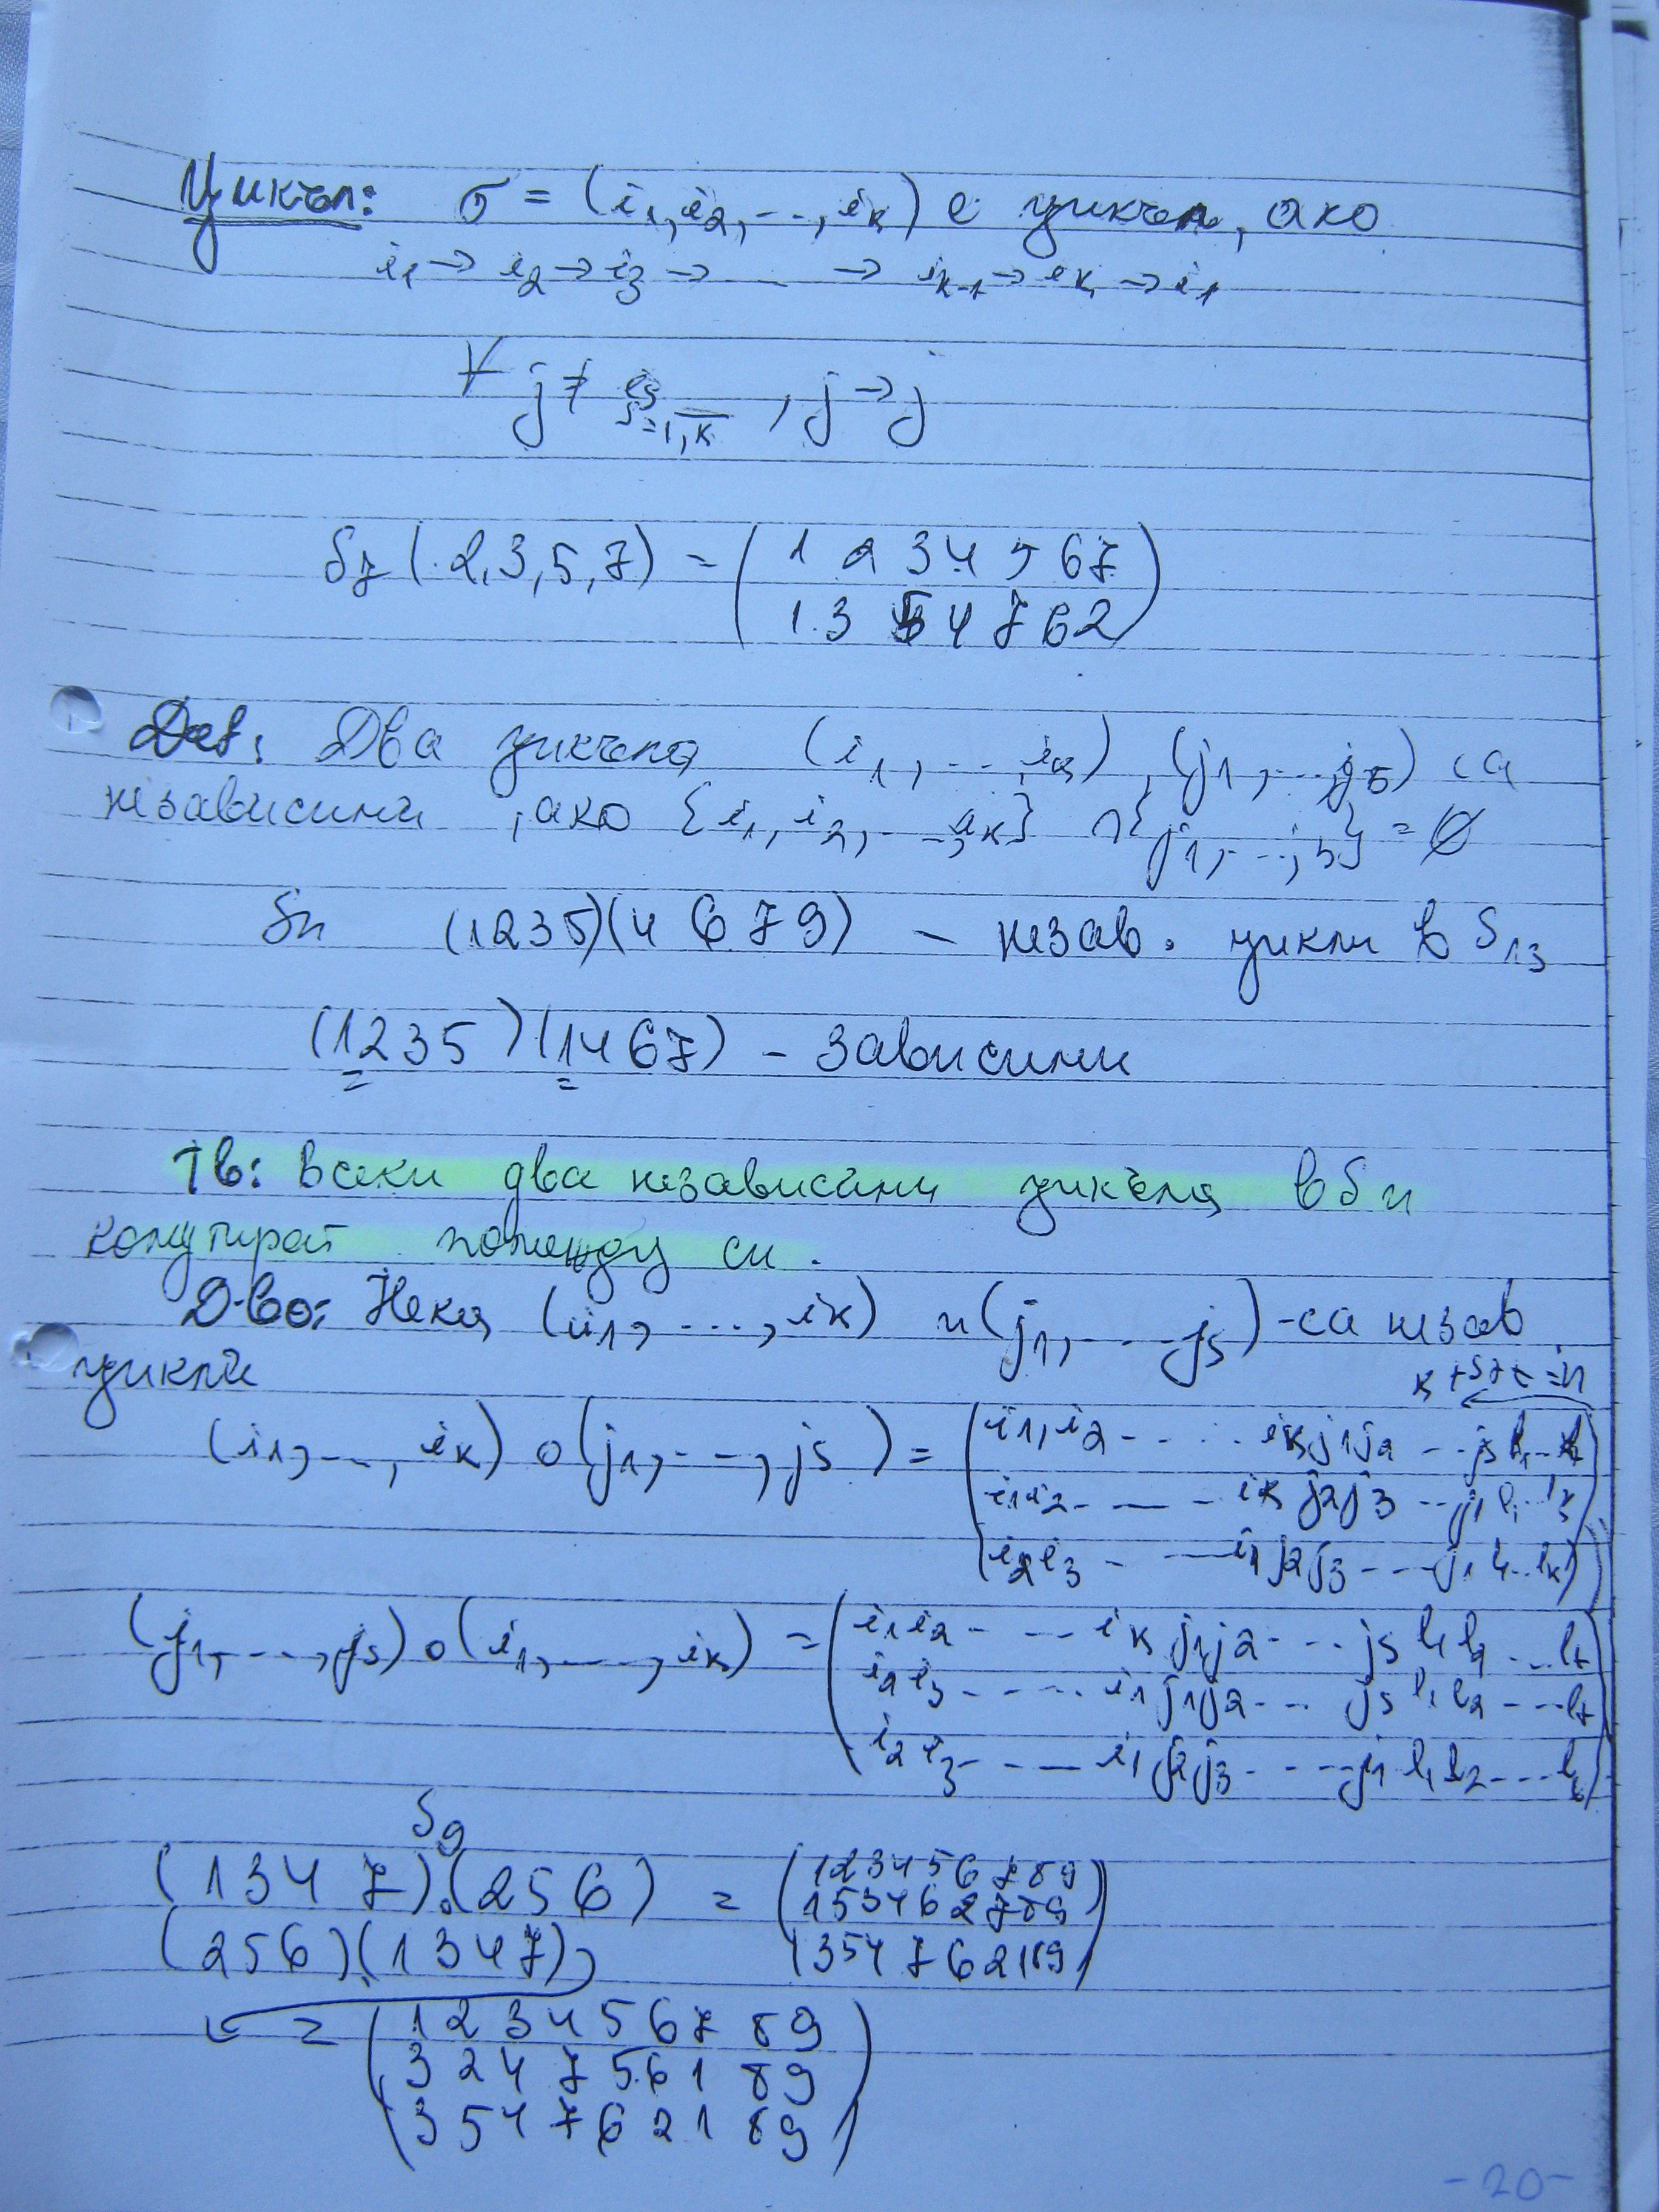 Цикъл: σ = (i1, i2, ..., ik) е цикъл, ако
i1 → i2 → i3 → ... → ik-1 → ik → i1
∀ j ≠ is s=1,k , j → j
S7 (2,3,5,7) = ( 1 2 3 4 5 6 7
1 3 5 4 7 6 2 )
Def: Два цикъла (i1, ..., ik), (j1, ..., js) са
независими, ако {i1, i2, ..., ik} ∩ {j1, ..., js} = ∅
Sn (1235)(4679) – незав. цикли в S13
(1235)(1467) – зависими
Тв: Всеки два независими цикъла в Sn
комутират помежду си.
Д-во: Нека (i1, ..., ik) и (j1, ..., js) - са незав
цикли
k+s+t=n
(i1, ..., ik) o (j1, ..., js) = ( i1, i2 ... ik j1 j2 ... js l1 ... lt
i1 i2 ... ik j2 j3 ... j1 l1 ... lt
i2 i3 ... i1 j2 j3 ... j1 l1 ... lt )
(j1, ..., js) o (i1, ..., ik) = ( i1 i2 ... ik j1 j2 ... js l1 l2 ... lt
i2 i3 ... i1 j1 j2 ... js l1 l2 ... lt
i2 i3 ... i1 j2 j3 ... j1 l1 l2 ... lt )
S9
(1347)o(256) = ( 1 2 3 4 5 6 7 8 9
1 5 3 4 6 2 7 8 9
3 5 4 7 6 2 1 8 9 )
(256)(1347)
= ( 1 2 3 4 5 6 7 8 9
3 2 4 7 5 6 1 8 9
3 5 4 7 6 2 1 8 9 )
-20-